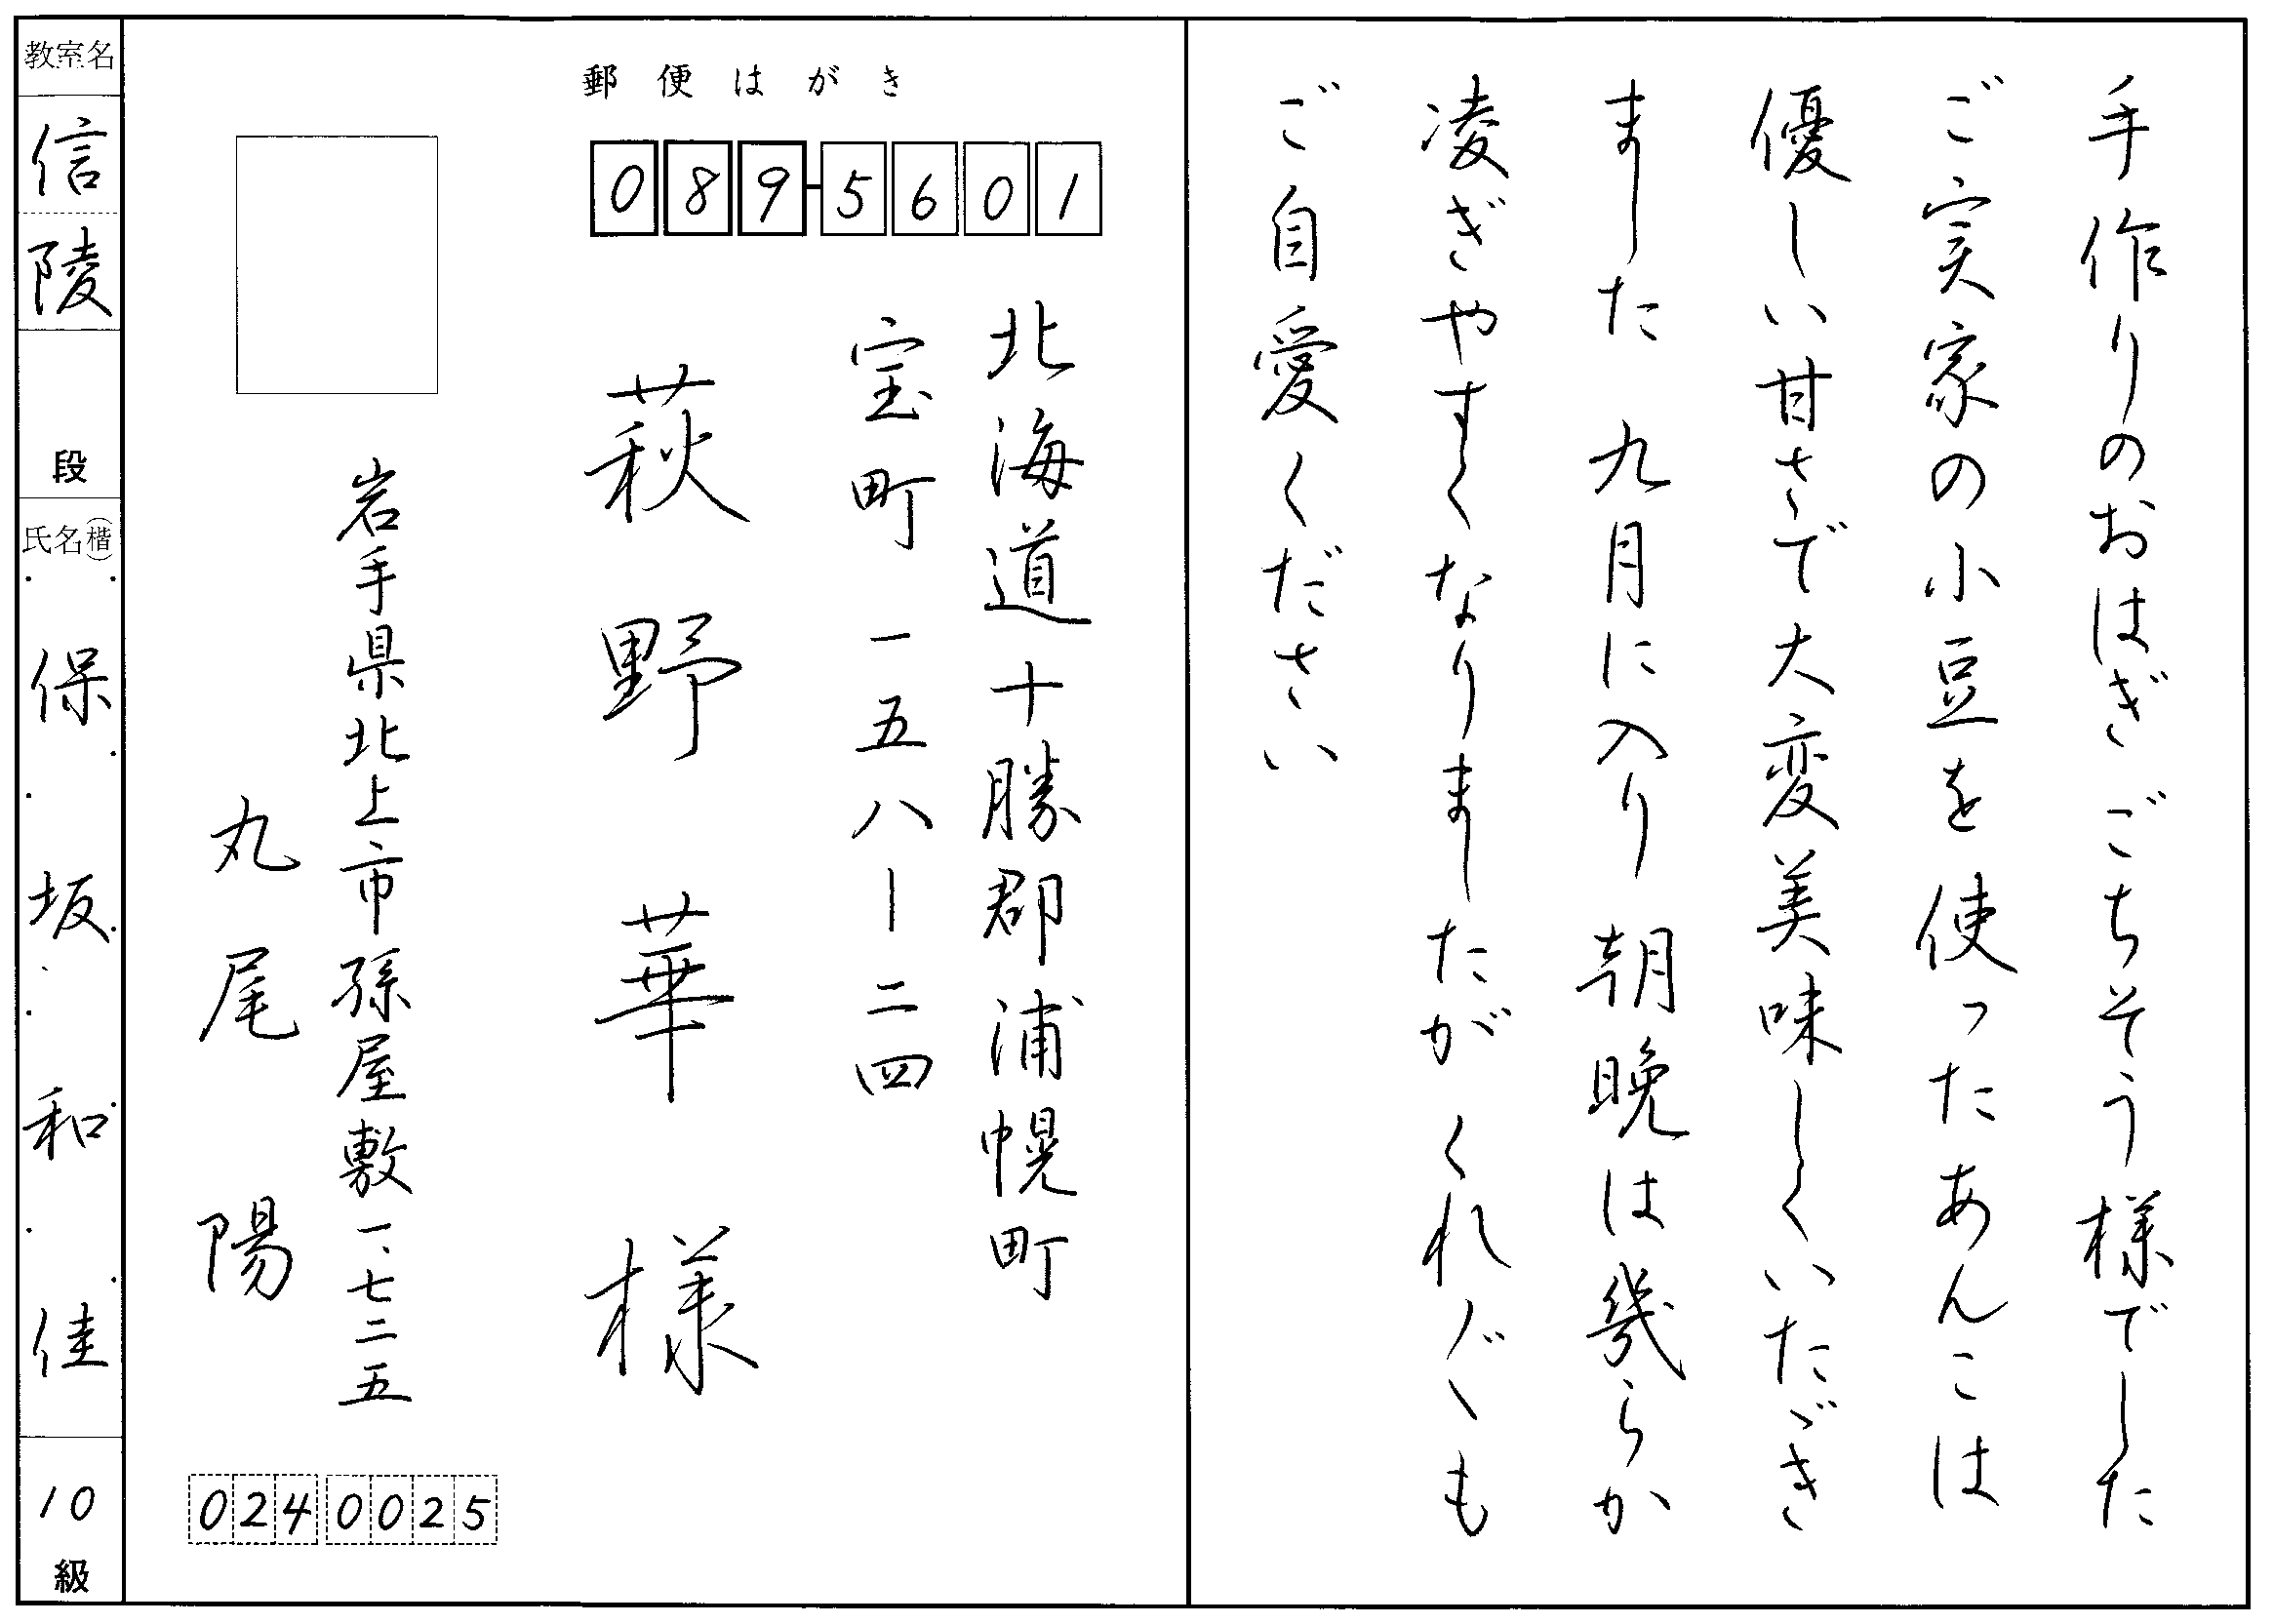 手作りのおはぎごちそう様でした
ご実家の小豆を使ったあんこは
優しい甘さで大変美味しくいただき
ました 九月に入り朝晩は幾らか
凌ぎやすくなりましたがくれ〲も
ご自愛ください
郵便はがき
089-5601
北海道十勝郡浦幌町
宝町一五八ー二四
萩野 華 様
岩手県北上市孫屋敷一、七二五
丸尾 陽
024 0025
教室名
信陵
段
氏名(楷)
保坂和佳
10
級